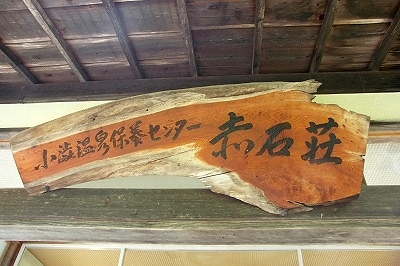 小渋温泉保養センター 赤石荘